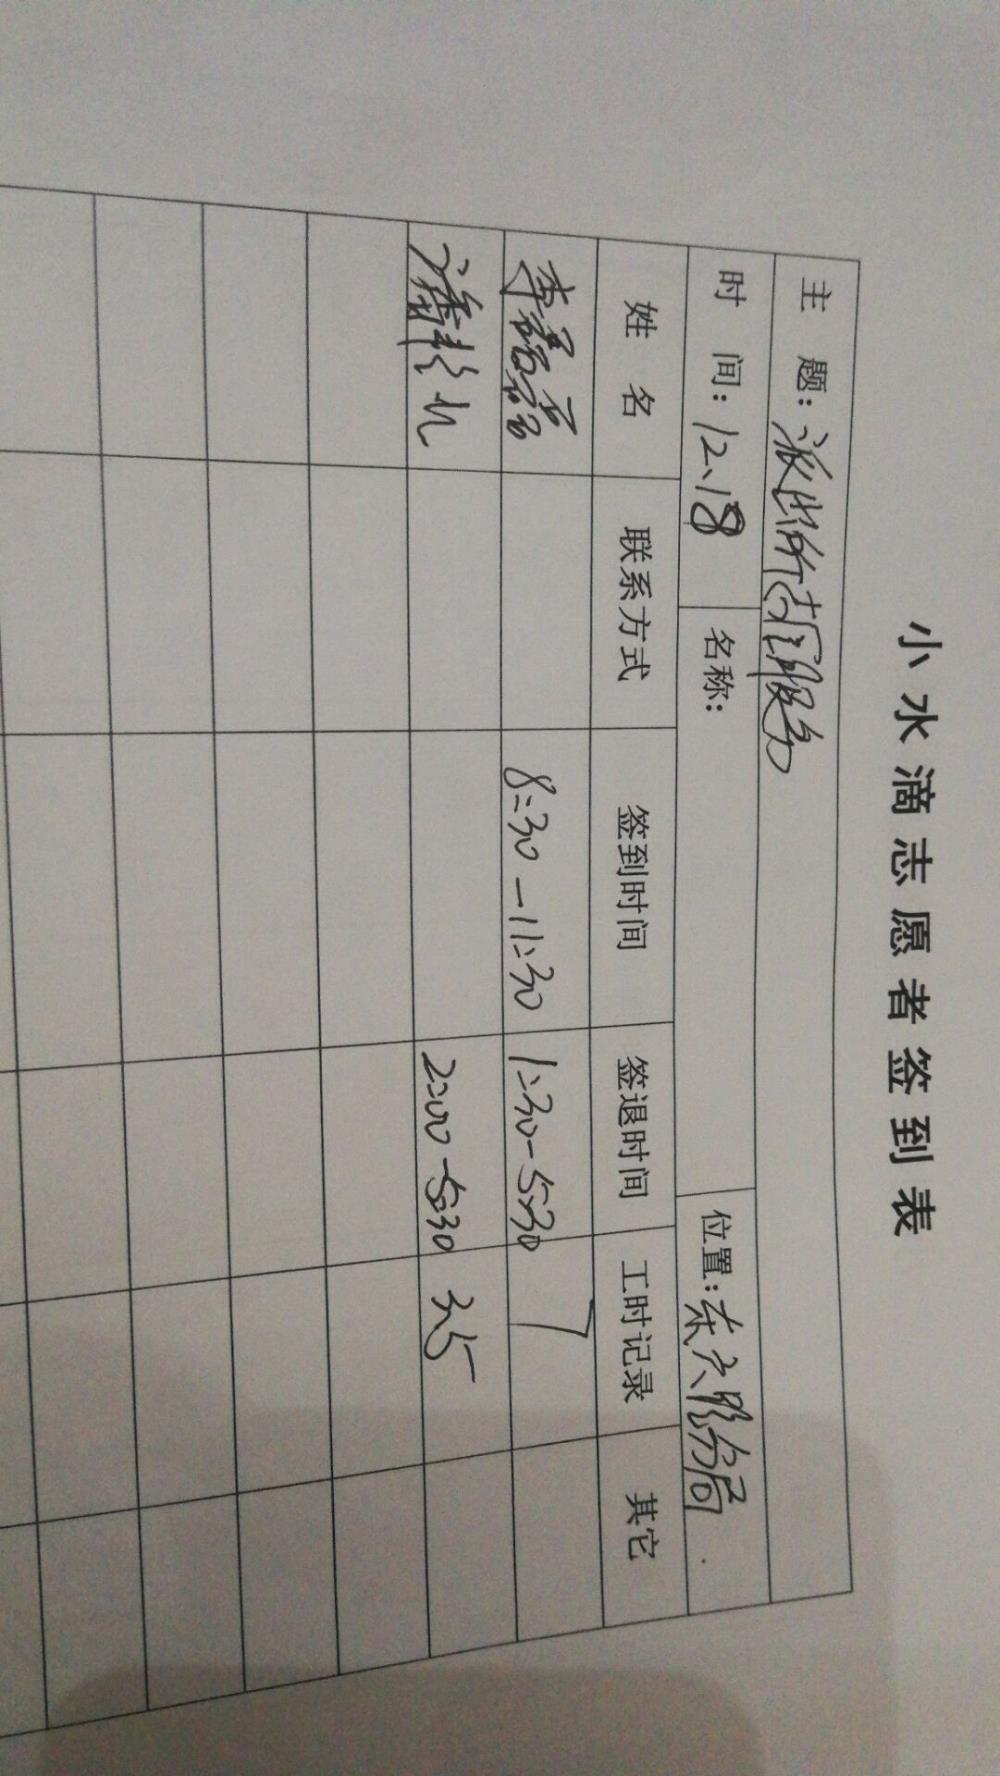 小水滴志愿者签到表
主 题：派出所志愿服务
时 间：12.18 名称： 位置：东 分局
姓 名 联系方式 签到时间 签退时间 工时记录 其它
李 8:30-11:30 1:30-5:30 7
潘 2:00-5:30 3.5